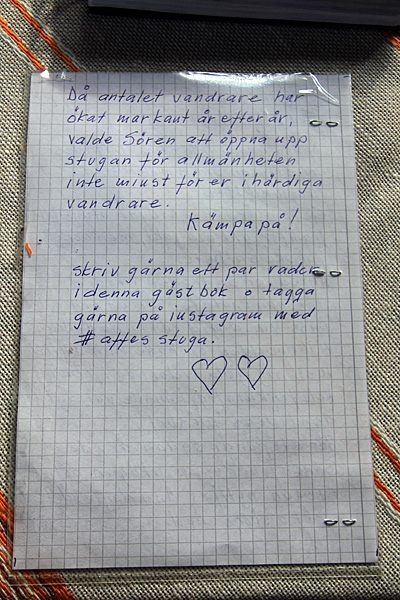 Då antalet vandrare har
ökat markant år efter år,
valde Sören att öppna upp
stugan för allmänheten
inte minst för er ihärdiga
vandrare.
Kämpa på!
skriv gärna ett par rader
i denna gästbok o tagga
gärna på instagram med
# affes stuga.